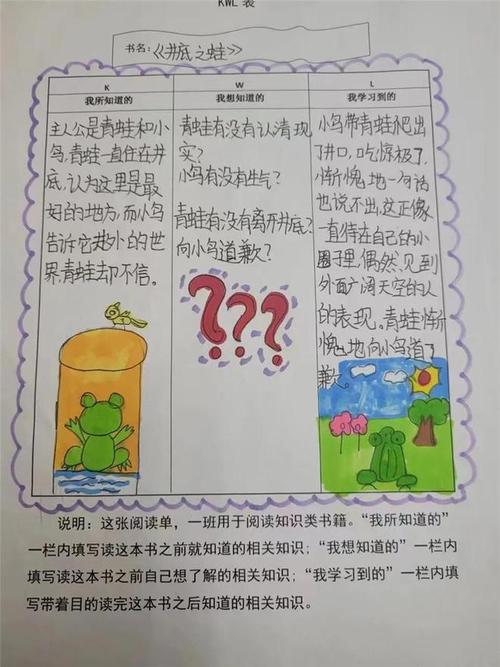 KWL 表
书名：《井底之蛙》
K
我所知道的
主人公是青蛙和小
鸟，青蛙一直住在井
底，认为这里是最
好的地方，而小鸟
告诉它井外的世
界，青蛙却不信。
W
我想知道的
青蛙有没有认清现
实？
小鸟有没有生气？
青蛙有没有离开井底？
向小鸟道歉？
???
L
我学习到的
小鸟带青蛙爬出
了井口，吃惊极了，
惭愧地一句话
也说不出，这正像
一直待在自己的小
圈子里，偶然见到
外面广阔天空的人
的表现。青蛙惭
愧地向小鸟道了
歉。
说明：这张阅读单，一班用于阅读知识类书籍。“我所知道的”
一栏内填写读这本书之前就知道的相关知识；“我想知道的”一栏内
填写读这本书之前自己想了解的相关知识；“我学习到的”一栏内填
写带着目的读完这本书之后知道的相关知识。